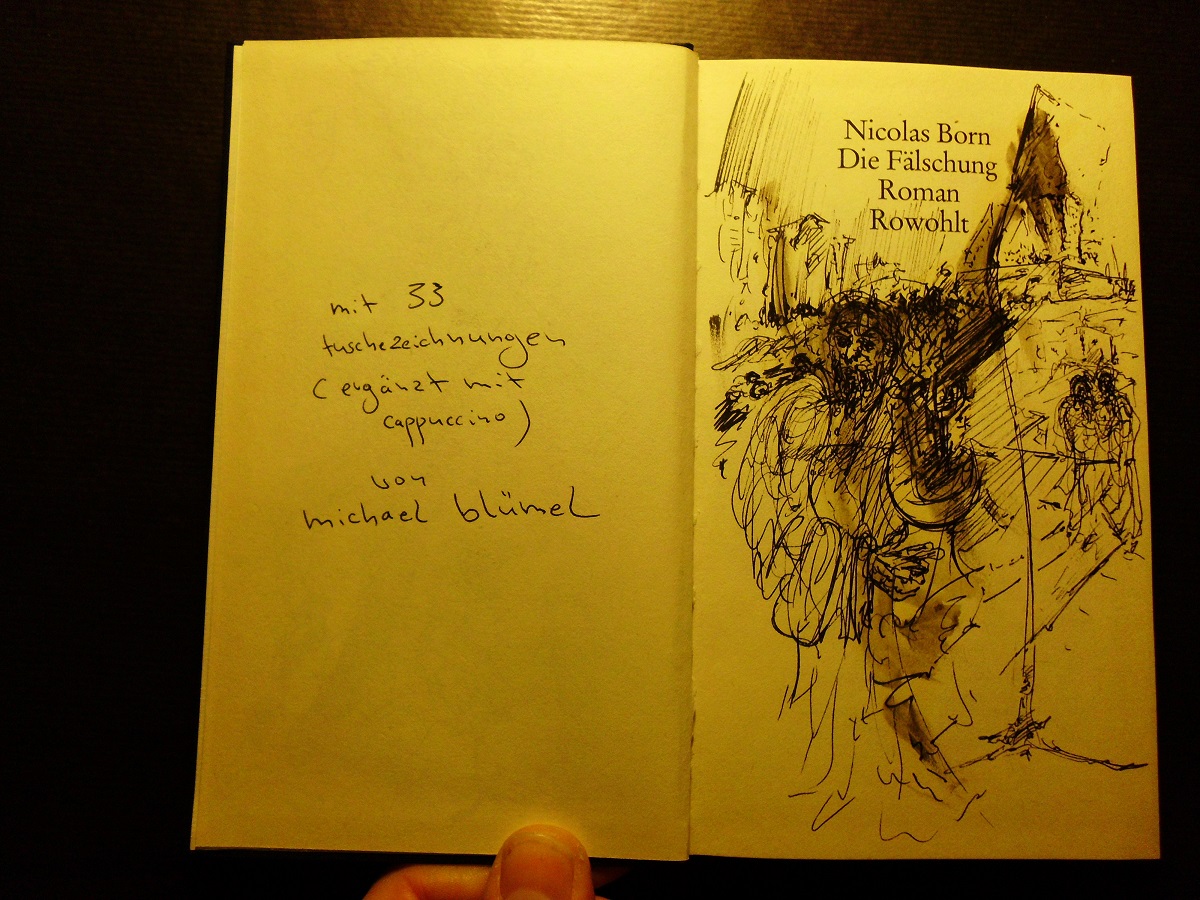 mit 33
tuschezeichnungen
(ergänzt mit
cappuccino)
von
michael blümel
Nicolas Born
Die Fälschung
Roman
Rowohlt